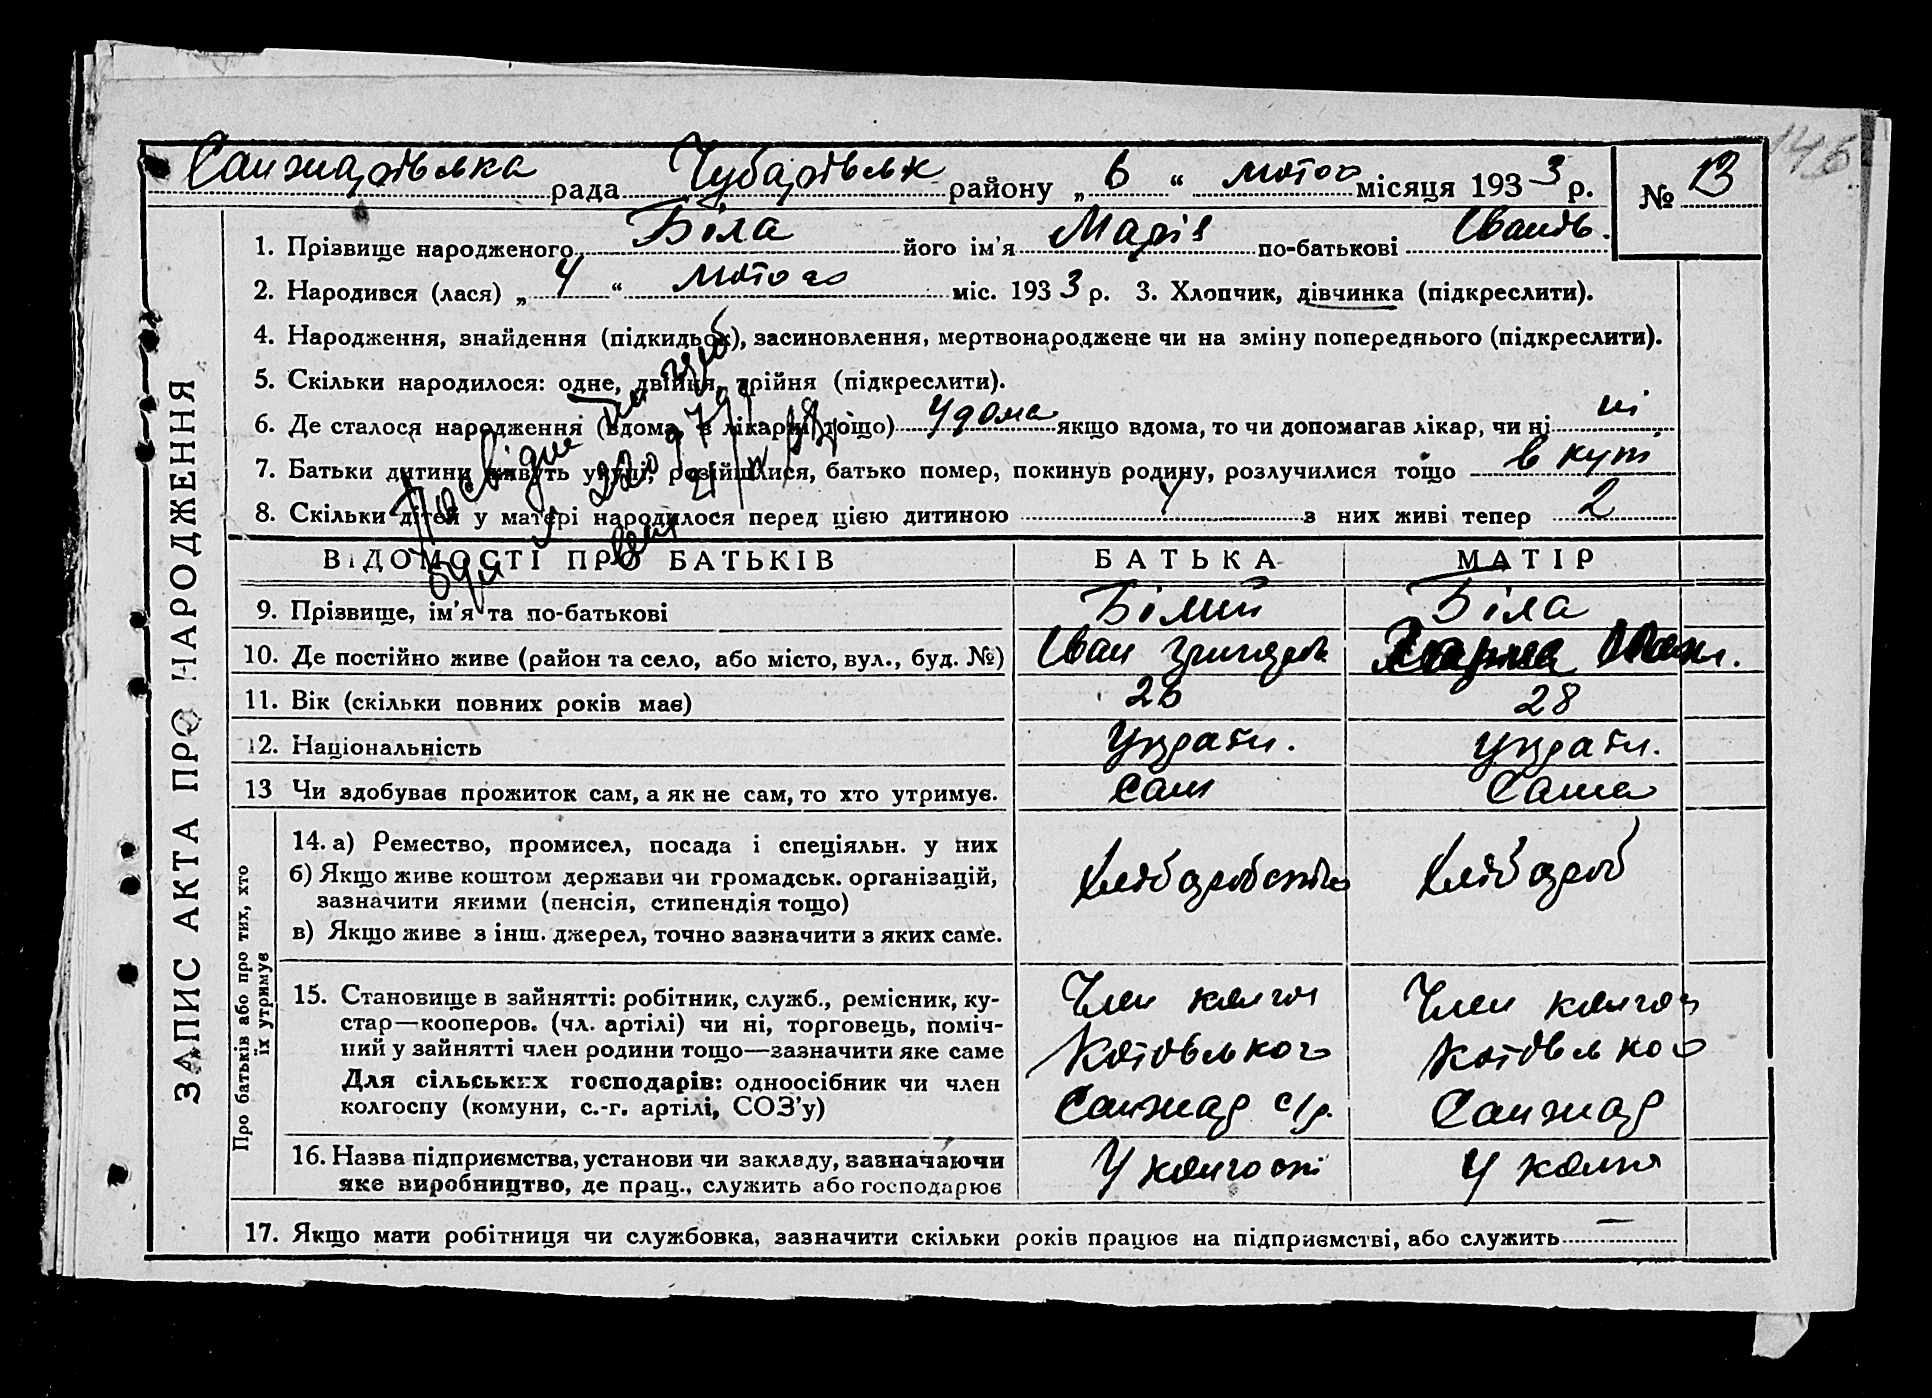 146
Санжарівська рада Чубарівськ району „ 6 “ лютого місяця 1933 р. № 13
ЗАПИС АКТА ПРО НАРОДЖЕННЯ
1. Прізвище народженого Біла його ім'я Марія по-батькові Іванів.
2. Народився (лася) „ 4 “ лютого міс. 1933 р. 3. Хлопчик, дівчинка (підкреслити).
4. Народження, знайдення (підкидьок), засиновлення, мертвонароджене чи на зміну попереднього (підкреслити).
5. Скільки народилося: одне, двійня, трійня (підкреслити).
6. Де сталося народження (вдома, в лікарні тощо) Удома якщо вдома, то чи допомагав лікар, чи ні ні
7. Батьки дитини живуть укупі, розійшлися, батько помер, покинув родину, розлучилися тощо в купі
8. Скільки дітей у матері народилося перед цією дитиною 4 з них живі тепер 2
ВІДОМОСТІ ПРО БАТЬКІВ БАТЬКА МАТІР
9. Прізвище, ім'я та по-батькові Білий Біла
10. Де постійно живе (район та село, або місто, вул., буд. №) Іван
11. Вік (скільки повних років має) 28
12. Національність Україн. Україн.
13 Чи здобуває прожиток сам, а як не сам, то хто утримує. Сам Сама
Про батьків або про тих, хто їх утримує
14. а) Ремество, промисел, посада і спеціяльн. у них
б) Якщо живе коштом держави чи громадськ. організацій,
зазначити якими (пенсія, стипендія тощо) Хлібороб
в) Якщо живе з інш. джерел, точно зазначити з яких саме.
15. Становище в зайнятті: робітник, служб., ремісник, ку-
стар—кооперов. (чл. артілі) чи ні, торговець, поміч-
ний у зайнятті член родини тощо—зазначити яке саме
Для сільських господарів: одноосібник чи член
колгоспу (комуни, с.-г. артілі, СОЗ'у)
Член колгосп Член колгосп
Котовського Котовського
Санжар с/р. Санжар
16. Назва підприємства, установи чи закладу, зазначаючи
яке виробництво, де прац., служить або господарює У колгоспі У колгоспі
17. Якщо мати робітниця чи службовка, зазначити скільки років працює на підприємстві, або служить —